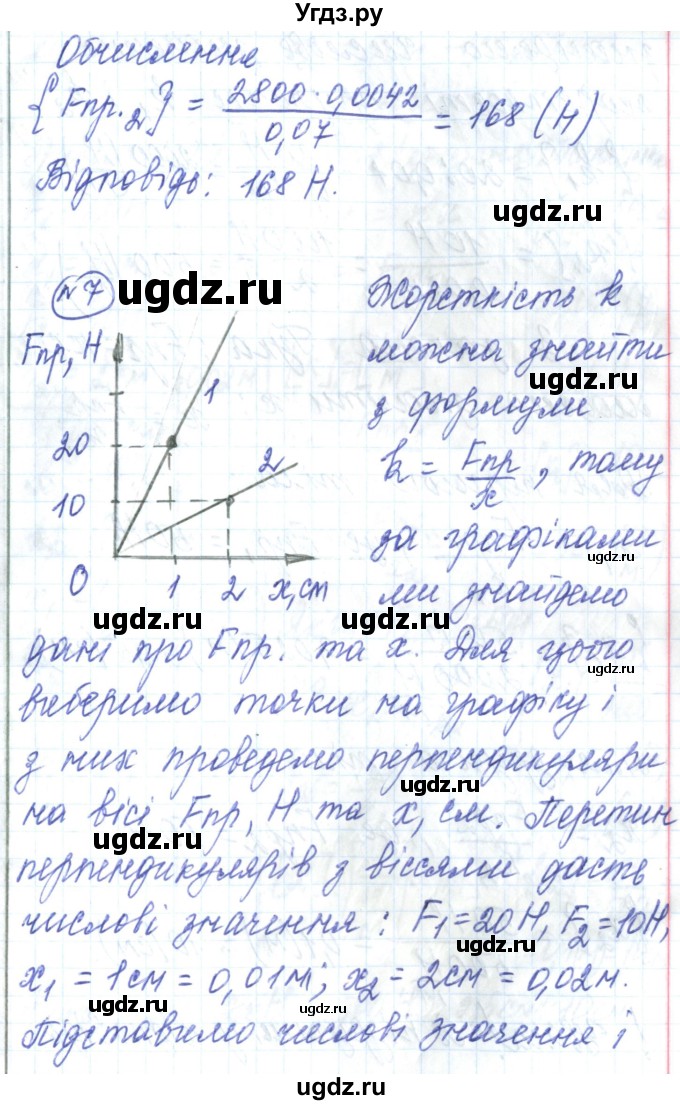 Угдз.ру
Обчислення
{Fпр.₂} = 2800·0,0042 / 0,07 = 168 (Н)
Відповідь: 168 Н.
ugdz.ru
№7
ugdz.ru
Fпр, Н
20
10
0
1
2
x, см
1
2
Жорсткість k
можна знайти
ugdz.ru
з формули
k = Fпр / x, тому
за графіками
ugdz.ru
ugdz.ru
ми знайдемо
дані про Fпр. та x. Для цього
ugdz.ru
виберимо точки на графіку і
з них проведемо перпендикуляри
ugdz.ru
на вісі Fпр, Н та x, см. Перетин
ugdz.ru
перпендикулярів з віссями дасть
ugdz.ru
числові значення: F₁=20Н, F₂=10Н,
ugdz.ru
x₁ = 1см = 0,01м; x₂ = 2см = 0,02м.
ugdz.ru
Підставимо числові значення і
ugdz.ru
ugdz.ru